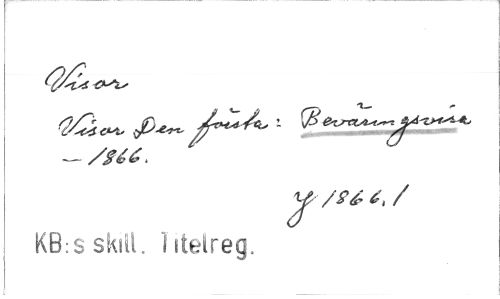 Visor
Visor Den första: Beväringsvisa
– 1866.
Y 1866.1
KB:s skill. Titelreg.